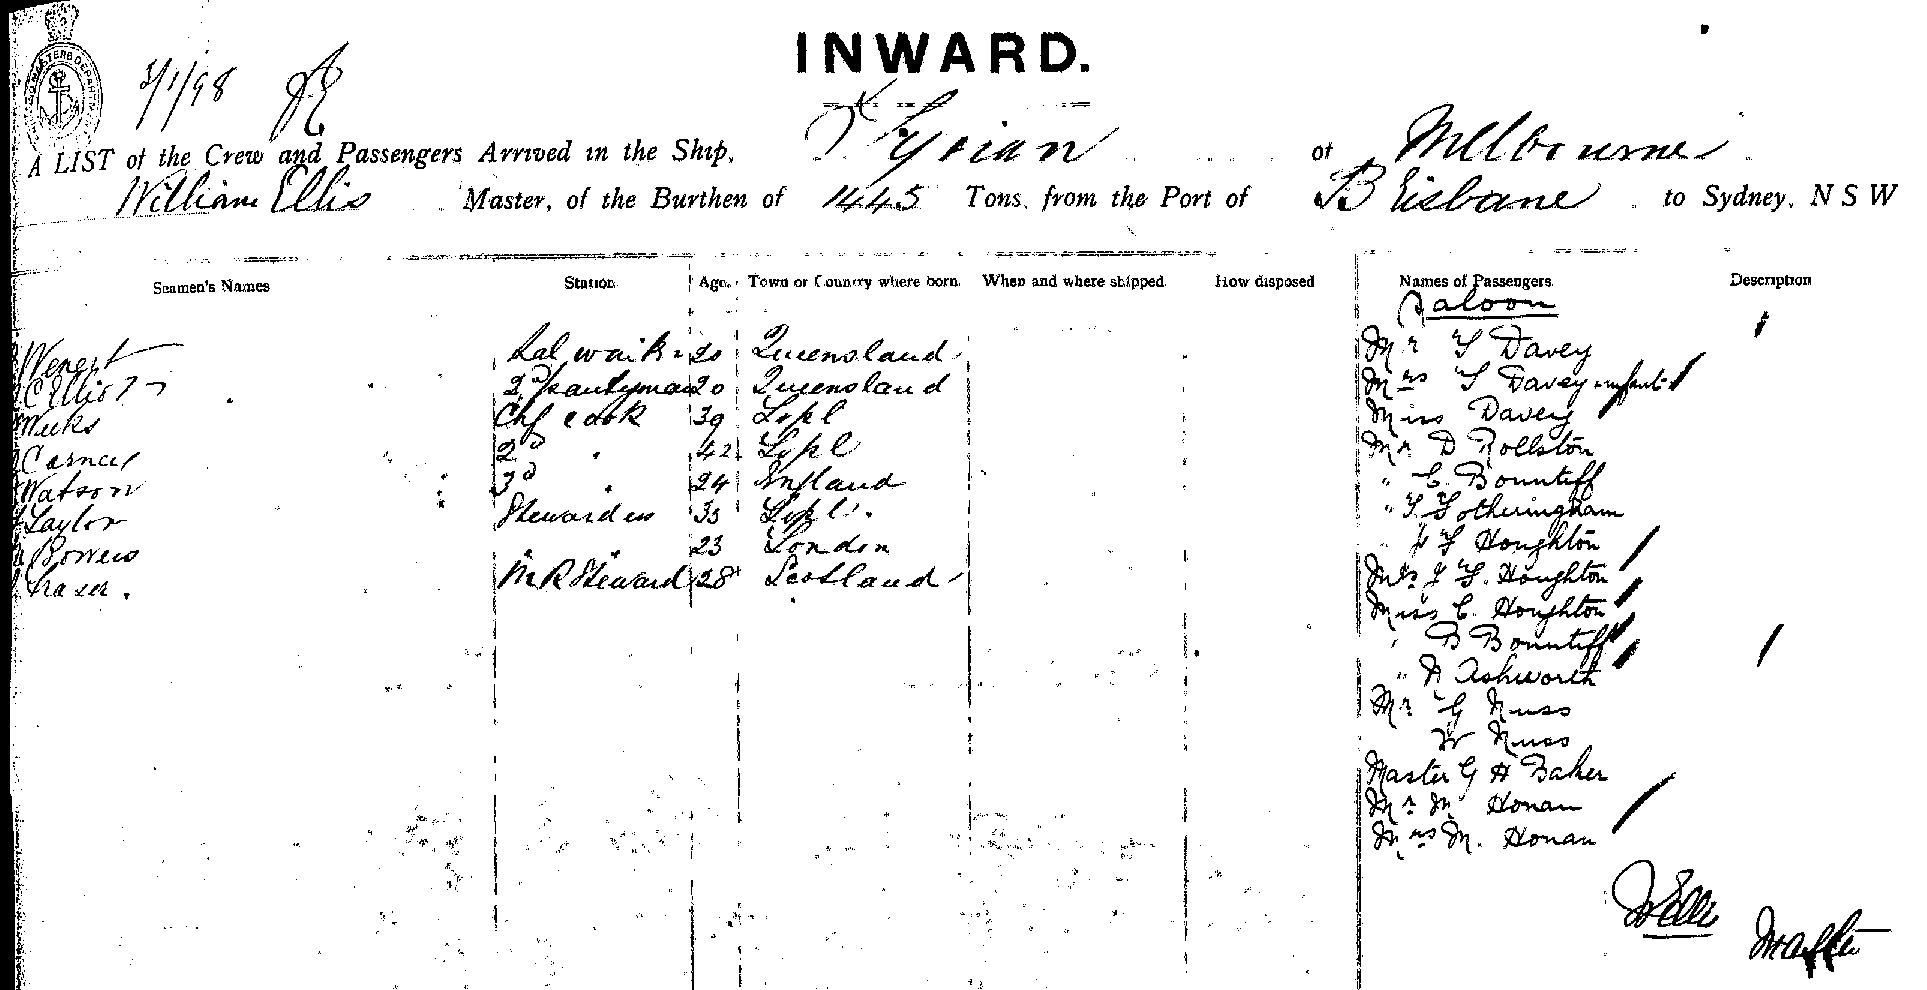 INWARD.
3/1/98
A LIST of the Crew and Passengers Arrived in the Ship, Tyrian of Melbourne
William Ellis Master, of the Burthen of 1445 Tons, from the Port of Brisbane to Sydney, N S W
Seamen's Names Station Age. Town or Country where born. When and where shipped. How disposed Names of Passengers. Description
Saloon
Sal wait. 20 Queensland Mr T Davey
Elliott 2d pantryman 20 Queensland Mrs T Davey infant
Weeks Chf cook 39 Lpl Miss Davey
2d " 42 Lpl Mr D Rollston
Watson 3d " 24 England " C. Bountiff
Taylor Stewardess 35 Lpl " T Fotheringham
Bowers " " 23 London " J F Houghton
Fraser. Steward 28 Scotland Mrs J F. Houghton
Miss C. Houghton
" B Bountiff
" A Ashworth
Mr G Nuss
W Nuss
Master G H Baker
Mr M Honan
Mrs M. Honan
W Ellis
Master